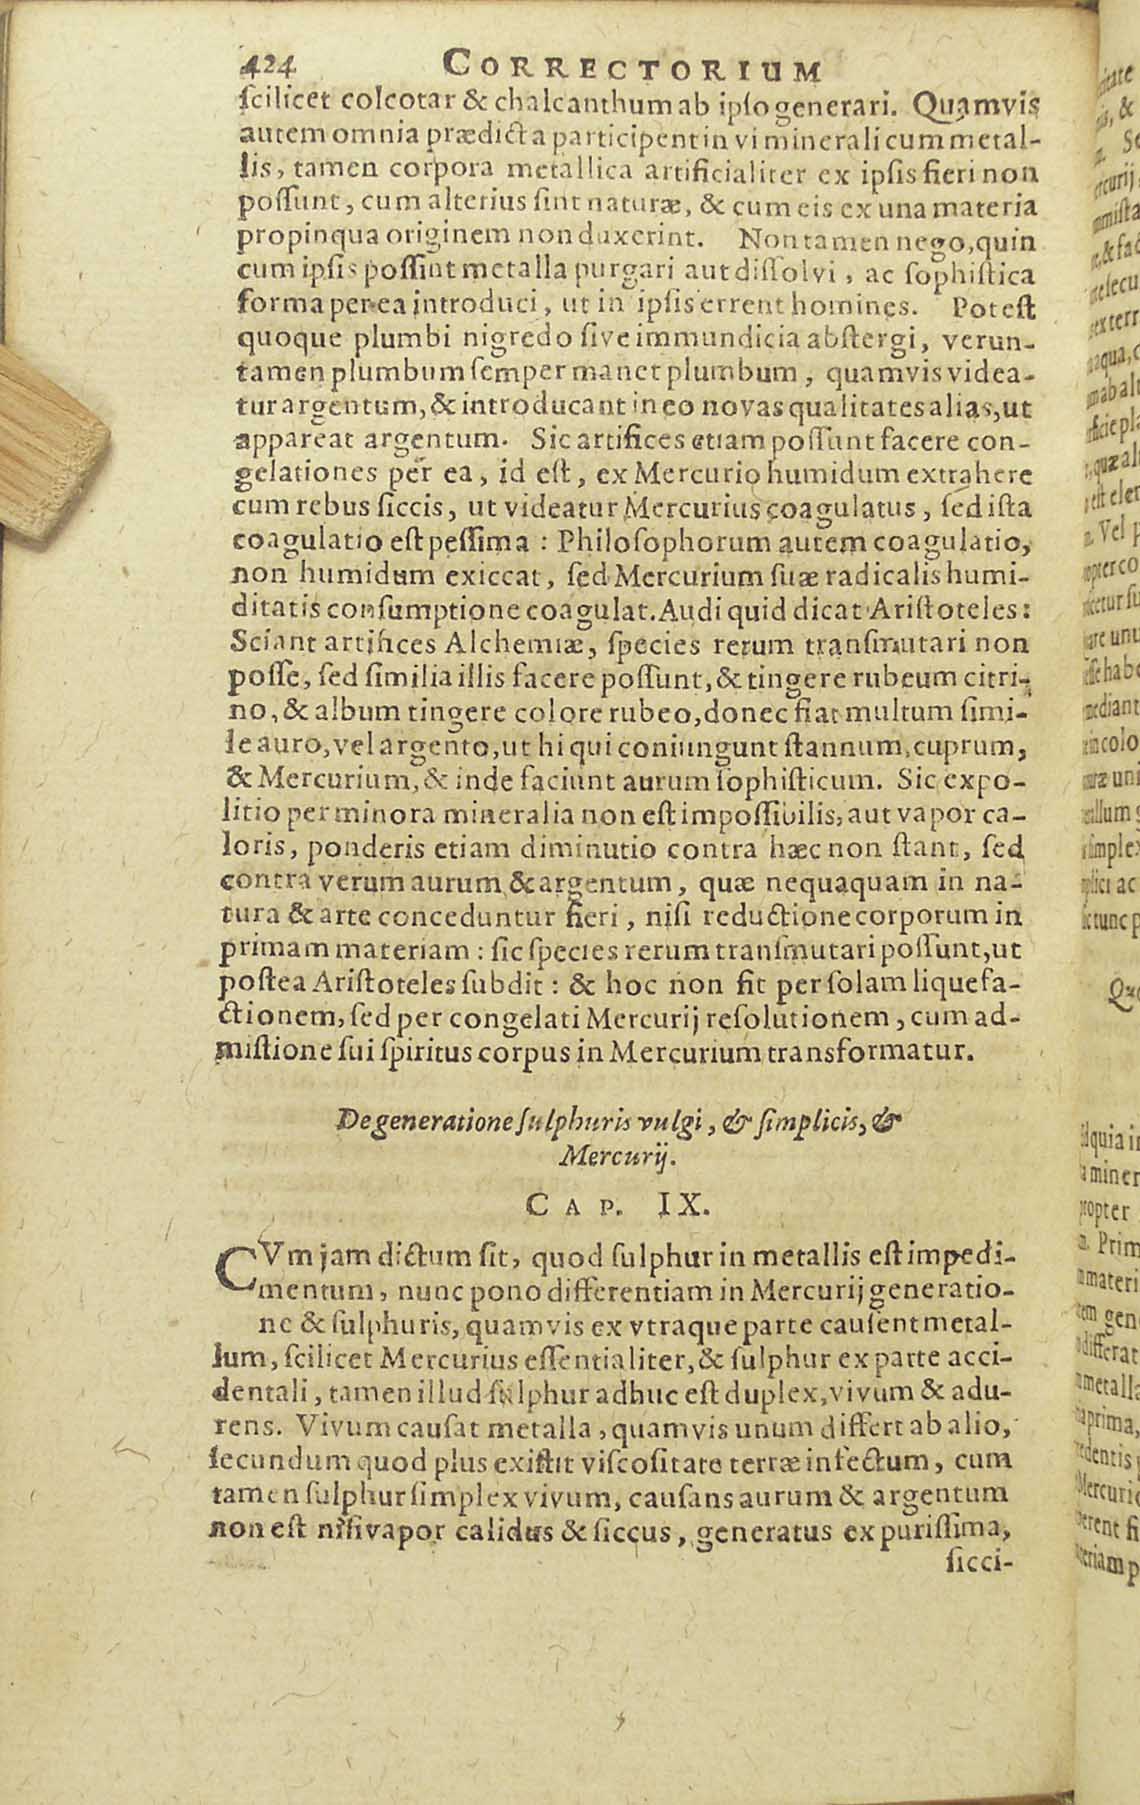 424 CORRECTORIUM
ſcilicet colcotar & chalcanthum ab ipſo generari. Quamvis
autem omnia prædicta participent in vi minerali cum metal-
lis, tamen corpora metallica artificialiter ex ipſis fieri non
poſſunt, cum alterius ſint naturæ, & cum eis ex una materia
propinqua originem non duxerint. Non tamen nego, quin
cum ipſis poſſint metalla purgari aut diſſolvi, ac ſophiſtica
forma per ea introduci, ut in ipſis errent homines. Poteſt
quoque plumbi nigredo ſive immundicia abſtergi, verun-
tamen plumbum ſemper manet plumbum, quamvis videa-
tur argentum, & introducant in eo novas qualitates alias, ut
appareat argentum. Sic artifices etiam poſſunt facere con-
gelationes per ea, id eſt, ex Mercurio humidum extrahere
cum rebus ſiccis, ut videatur Mercurius coagulatus, ſed iſta
coagulatio eſt peſſima: Philoſophorum autem coagulatio,
non humidum exiccat, ſed Mercurium ſuæ radicalis humi-
ditatis conſumptione coagulat. Audi quid dicat Ariſtoteles:
Sciant artifices Alchemiæ, ſpecies rerum tranſmutari non
poſſe, ſed ſimilia illis facere poſſunt, & tingere rubeum citri-
no, & album tingere colore rubeo, donec fiat multum ſimi-
le auro, vel argento, ut hi qui coniungunt ſtannum, cuprum,
& Mercurium, & inde faciunt aurum ſophiſticum. Sic expo-
litio per minora mineralia non eſt impoſſibilis, aut vapor ca-
loris, ponderis etiam diminutio contra hæc non ſtant, ſed
contra verum aurum & argentum, quæ nequaquam in na-
tura & arte conceduntur fieri, niſi reductione corporum in
primam materiam: ſic ſpecies rerum tranſmutari poſſunt, ut
poſtea Ariſtoteles ſubdit: & hoc non fit per ſolam liquefa-
ctionem, ſed per congelati Mercurij reſolutionem, cum ad-
miſtione ſui ſpiritus corpus in Mercurium transformatur.
De generatione ſulphuris vulgi, & ſimplicis, &
Mercurij.
CAP. IX.
CVm jam dictum ſit, quod ſulphur in metallis eſt impedi-
mentum, nunc pono differentiam in Mercurij generatio-
ne & ſulphuris, quamvis ex vtraque parte cauſent metal-
lum, ſcilicet Mercurius eſſentialiter, & ſulphur ex parte acci-
dentali, tamen illud ſulphur adhuc eſt duplex, vivum & adu-
rens. Vivum cauſat metalla, quamvis unum differt ab alio,
ſecundum quod plus exiſtit viſcoſitate terræ infectum, cum
tamen ſulphur ſimplex vivum, cauſans aurum & argentum
non eſt niſi vapor calidus & ſiccus, generatus ex puriſſima,
ſicci-